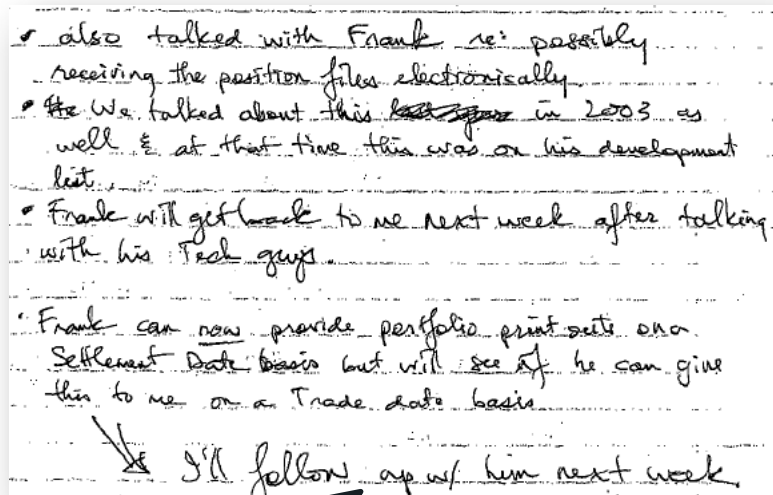 • also talked with Frank re: possibly
receiving the position files electronically.
• He We talked about this last year in 2003 as
well & at that time this was on his development
list.
• Frank will get back to me next week after talking
with his Tech guys.
• Frank can now provide portfolio print outs on a
Settlement Date basis but will see if he can give
this to me on a Trade date basis
I'll follow up w/ him next week.